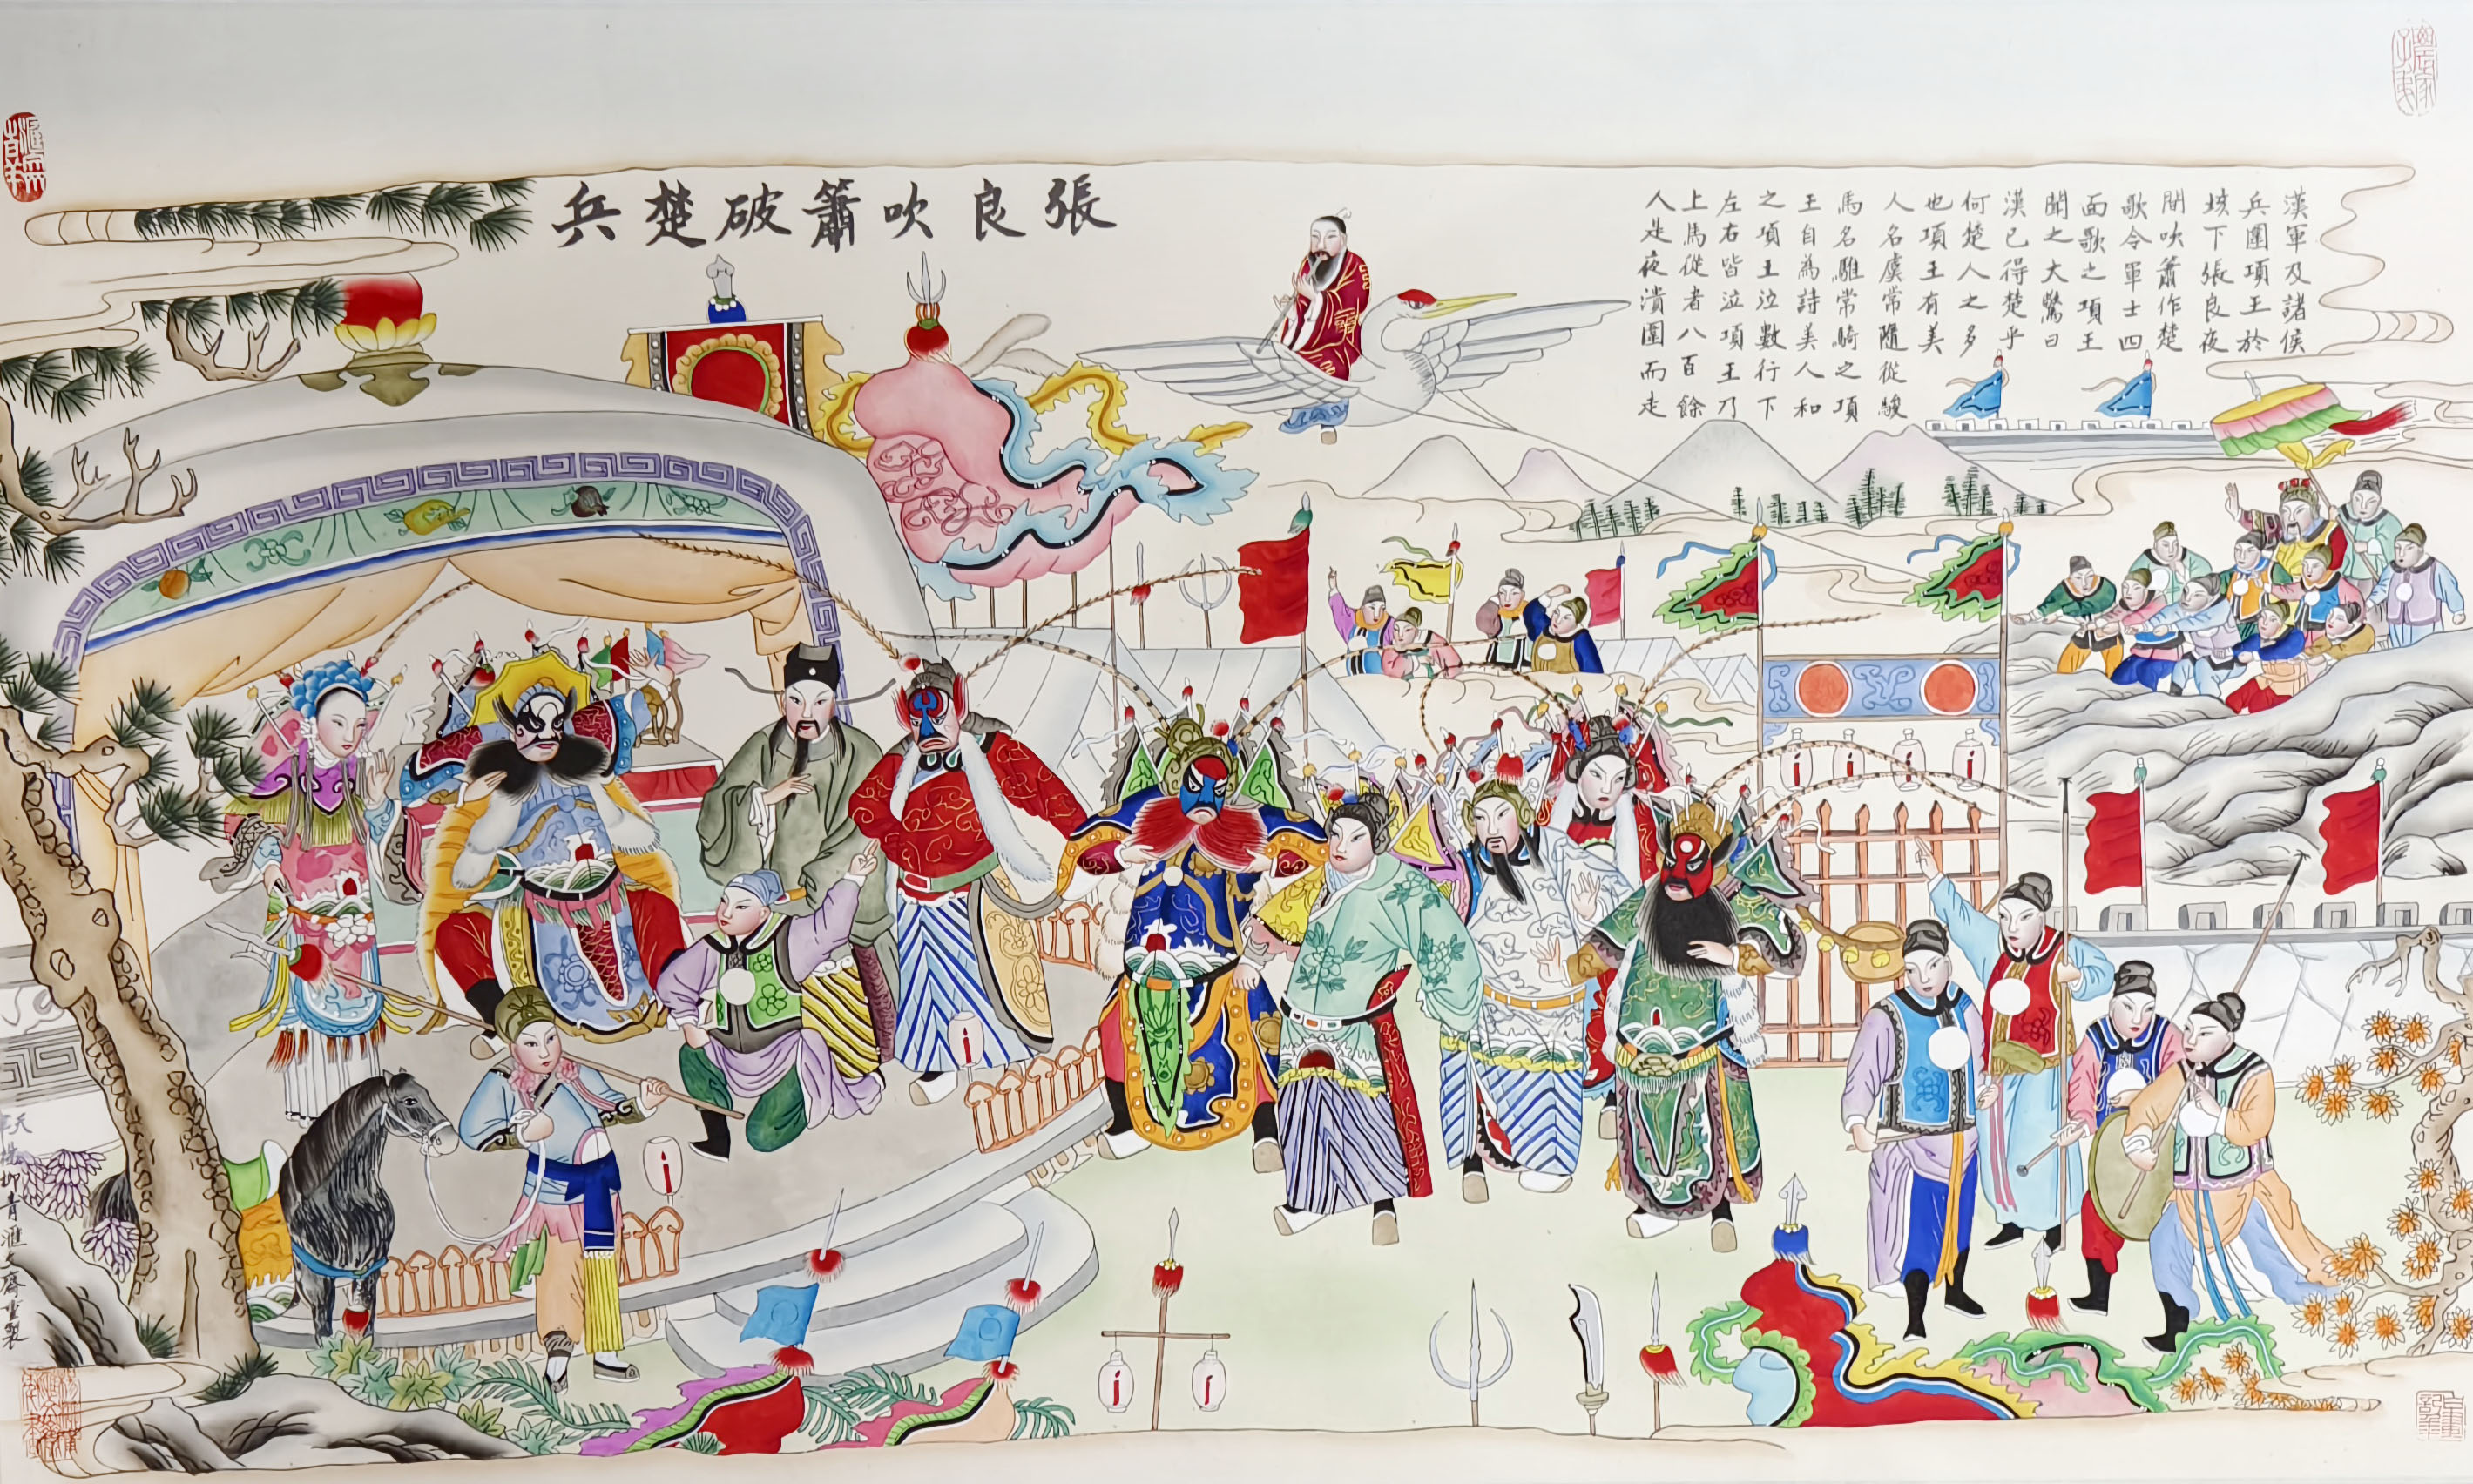 張良吹簫破楚兵
漢軍及諸侯
兵圍項王於
垓下張良夜
間吹簫作楚
歌令軍士四
面歌之項王
聞之大驚曰
漢已得楚乎
何楚人之多
也項王有美
人名虞常隨從駿
馬名騅常騎之項
王自為詩美人和
之項王泣數行下
左右皆泣項王乃
上馬從者八百餘
人是夜潰圍而走
柳青滙文齋重製